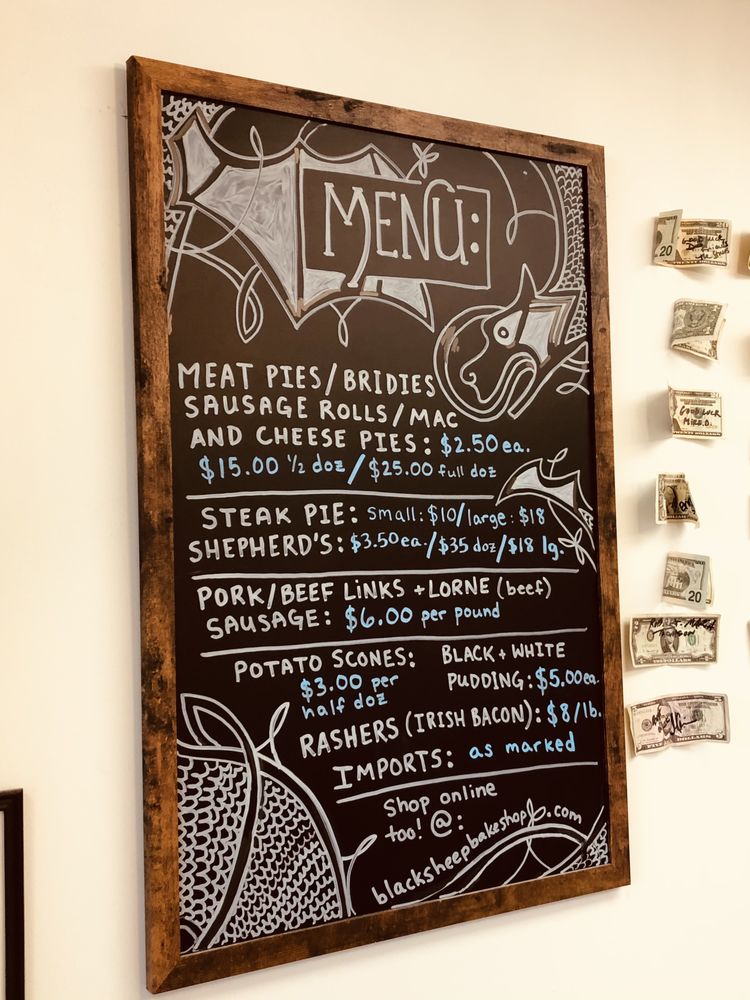 MENU:
MEAT PIES/BRIDIES
SAUSAGE ROLLS/MAC
AND CHEESE PIES: $2.50 ea.
$15.00 ½ doz/$25.00 full doz
STEAK PIE: Small: $10/large: $18
SHEPHERD'S: $3.50ea/$35 doz/$18 lg.
PORK/BEEF LINKS + LORNE (beef)
SAUSAGE: $6.00 per pound
POTATO SCONES:
$3.00 per
half doz
BLACK + WHITE
PUDDING: $5.00ea.
RASHERS (IRISH BACON): $8/lb.
IMPORTS: as marked
Shop online
too! @:
blacksheepbakeshop.com
20
TWENTY DOLLARS
GOOD LUCK
20
FIVE DOLLARS